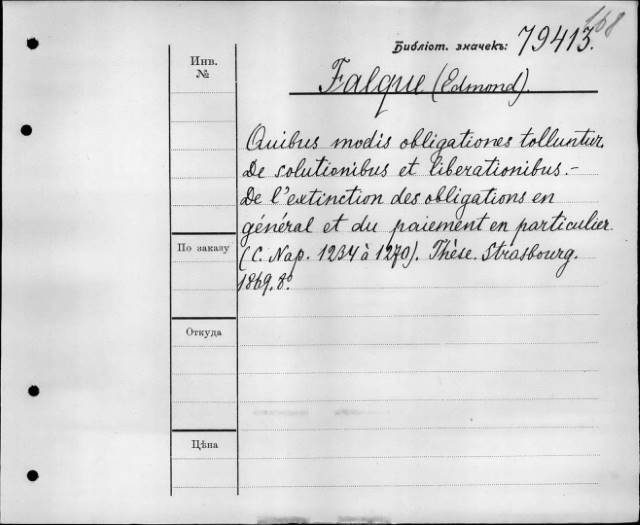 168
Библіот. значекъ: 79413.
Инв.
№
Falque (Edmond).
Quibus modis obligationes tolluntur.
De solutionibus et liberationibus. -
De l'extinction des obligations en
général et du paiement en particulier
(C. Nap. 1234 à 1270). Thèse. Strasbourg.
1869. 8º
По заказу
Откуда
Цѣна